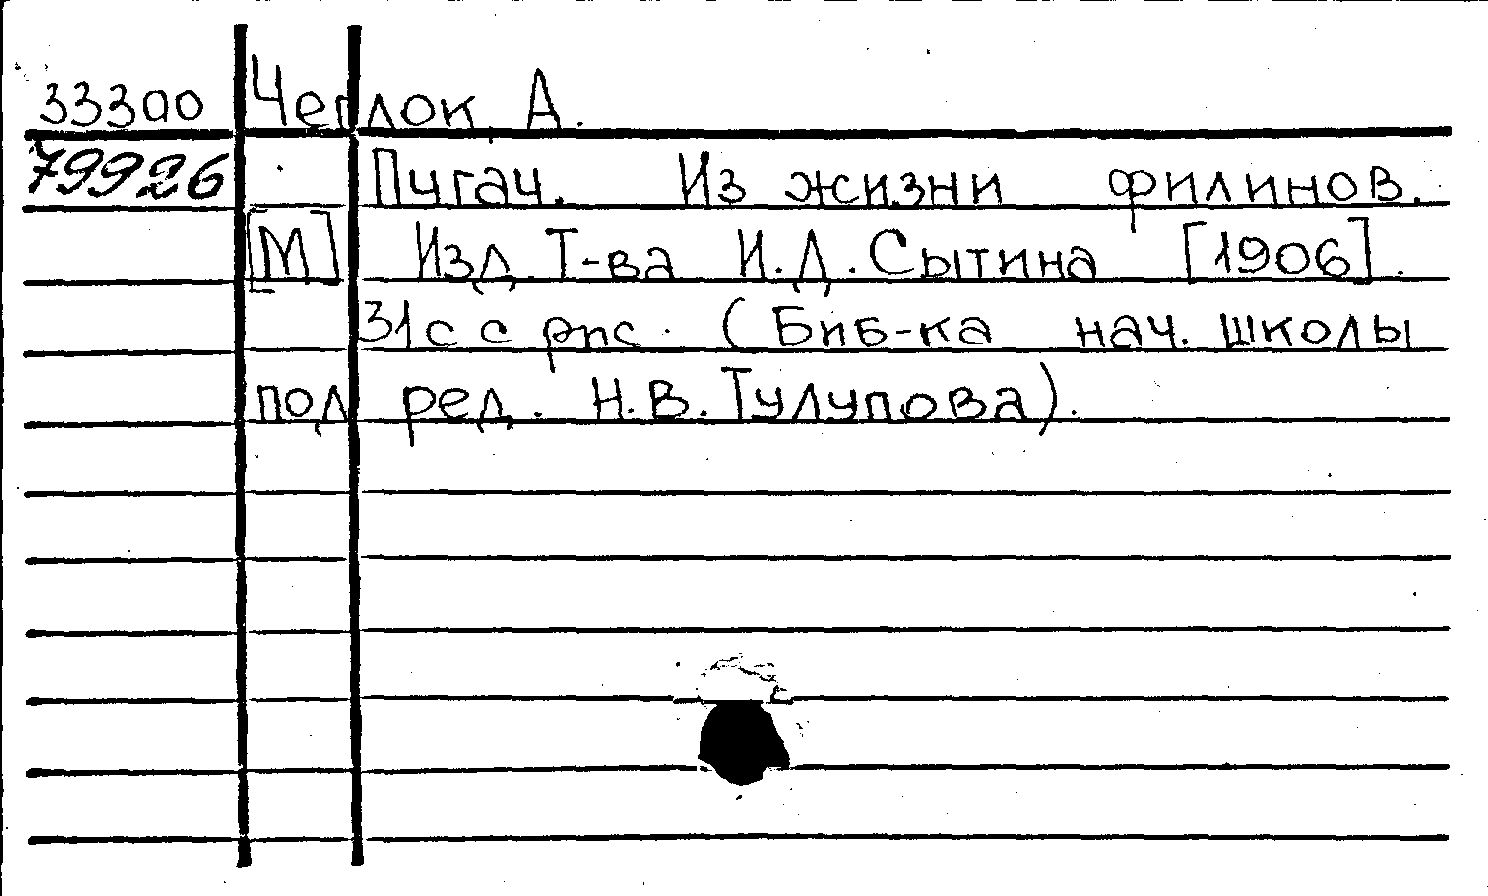 33300 Чеглок, А.
79926 Пугач. Из жизни филинов.
[М] Изд. Т-ва И.Д.Сытина [1906].
31с с рис. (Биб-ка нач. школы
под ред. Н.В.Тулупова).